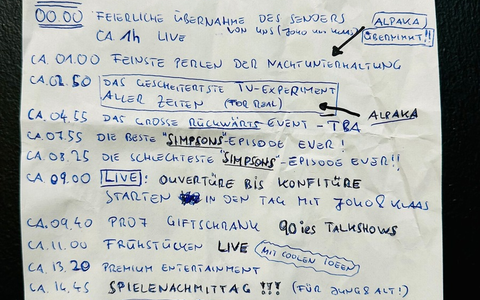 00.00 FEIERLICHE ÜBERNAHME DES SENDERS
CA. 1h LIVE VON UNS (JOKO UND KLAAS)
ALPAKA
ÜBERNIMMT!!
CA. 01.00 FEINSTE PERLEN DER NACHTUNTERHALTUNG
CA. 02.50 DAS GESCHEITERTSTE TV-EXPERIMENT
ALLER ZEITEN (FOR REAL)
ALPAKA
CA. 04.55 DAS GROSSE RÜCKWÄRTS EVENT - TBA
CA. 07.55 DIE BESTE "SIMPSONS"-EPISODE EVER!
CA. 08.25 DIE SCHLECHTESTE "SIMPSONS"-EPISODE EVER!!
CA. 09.00 LIVE: OUVERTÜRE BIS KONFITÜRE
STARTEN IN DEN TAG MIT JOKO & KLAAS
CA. 09.40 PRO7 GIFTSCHRANK 90ies TALKSHOWS
CA. 11.00 FRÜHSTÜCKEN LIVE MIT COOLEN IDEEN
CA. 13.20 PREMIUM ENTERTAINMENT
CA. 14.45 SPIELENACHMITTAG !!! (FÜR JUNG & ALT!)